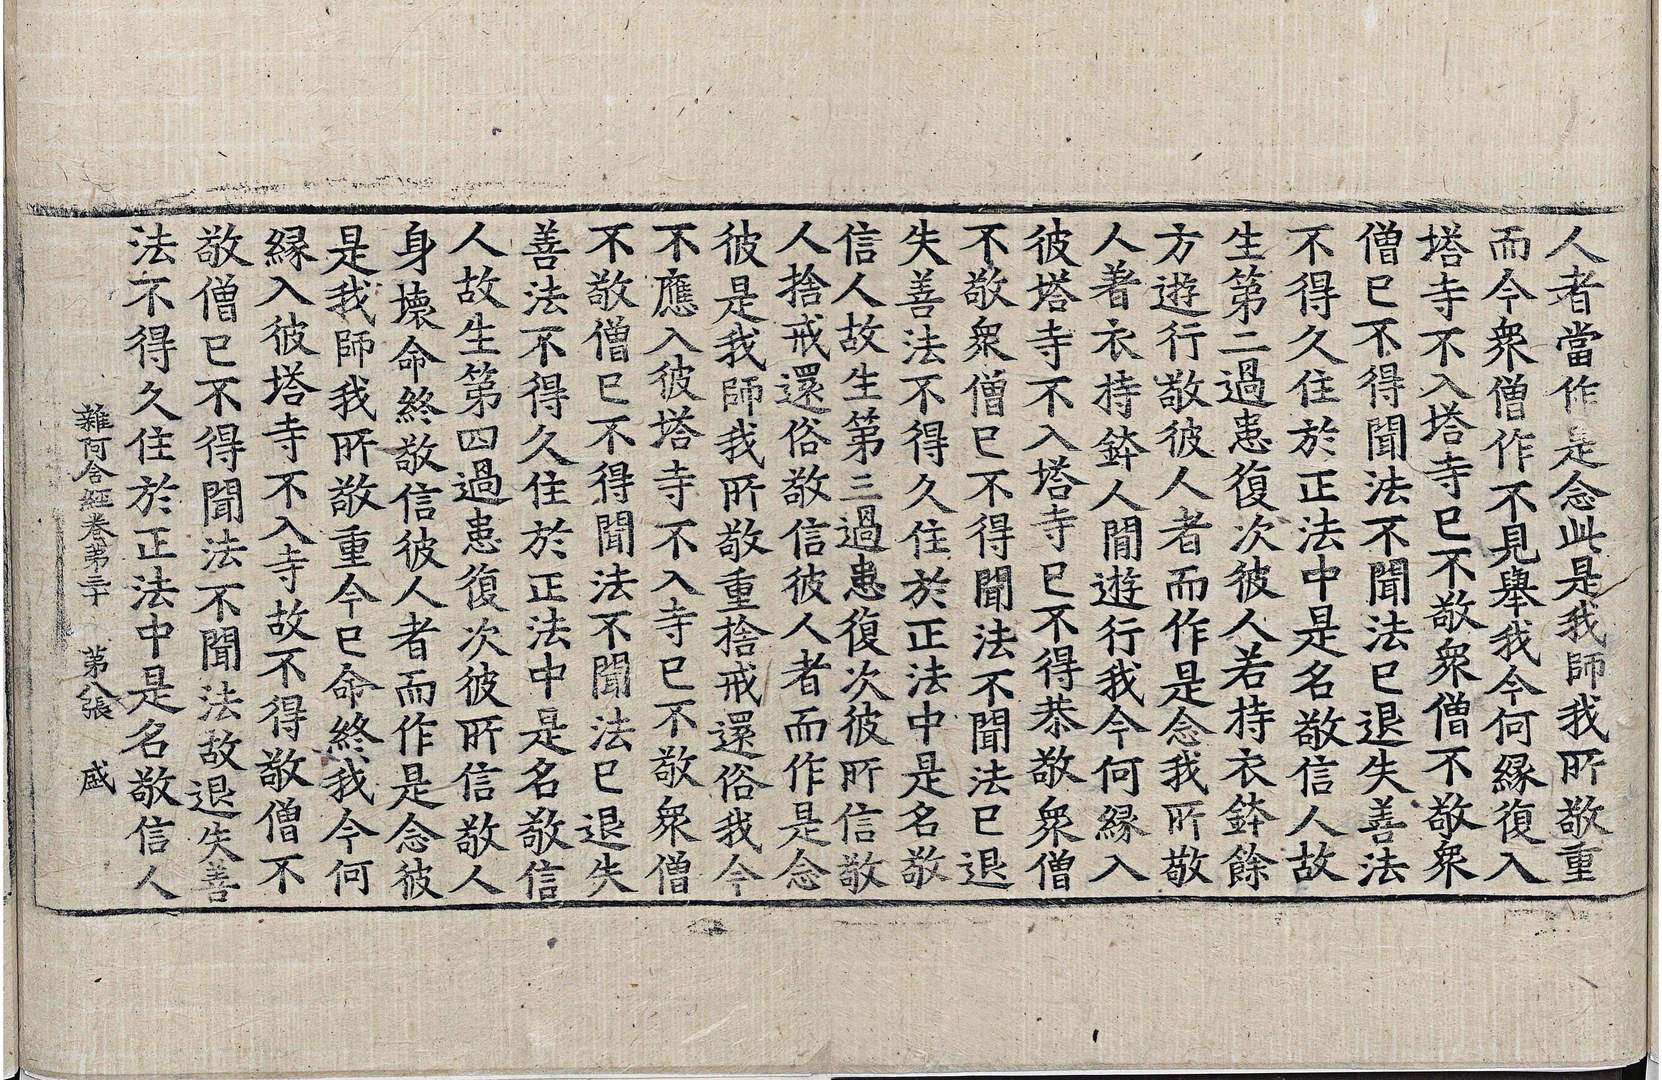 人者當作是念此是我師我所敬重
而今衆僧作不見舉我今何緣復入
塔寺不入塔寺已不敬衆僧不敬衆
僧已不得聞法不聞法已退失善法
不得久住於正法中是名敬信人故
生第二過患復次彼人若持衣鉢餘
方遊行敬彼人者而作是念我所敬
人著衣持鉢人間遊行我今何緣入
彼塔寺不入塔寺已不得恭敬衆僧
不敬衆僧已不得聞法不聞法已退
失善法不得久住於正法中是名敬
信人故生第三過患復次彼所信敬
人捨戒還俗敬信彼人者而作是念
彼是我師我所敬重捨戒還俗我今
不應入彼塔寺不入寺已不敬衆僧
不敬僧已不得聞法不聞法已退失
善法不得久住於正法中是名敬信
人故生第四過患復次彼所信敬人
身壞命終敬信彼人者而作是念彼
是我師我所敬重今已命終我今何
緣入彼塔寺不入寺故不得敬僧不
敬僧已不得聞法不聞法故退失善
法不得久住於正法中是名敬信人
雜阿含經卷第三十 第八張 盛